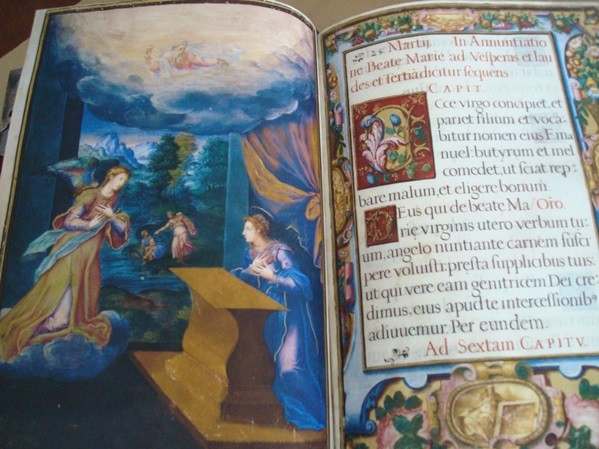 25 Martij. In Annuntiatio
ne Beate Marie ad Vesperas, et lau
des et Tertia dicitur sequens
CAPIT
Ecce virgo concipiet, et
pariet filium et voca
bitur nomen eius Em̄a
nuel: butyrum et mel
comedet, ut sciat rep
bare malum, et eligere bonum.
Deus qui de beate Ma/Oro.
rie virginis utero verbum tu
um, angelo nuntiante carnem susci
pere voluisti: presta supplicibus tuis:
ut qui vere eam genitricem Dei cre
dimus, eius apud te intercessionib⁹
adiuuemur. Per eundem.
Ad Sextam CAPITV.